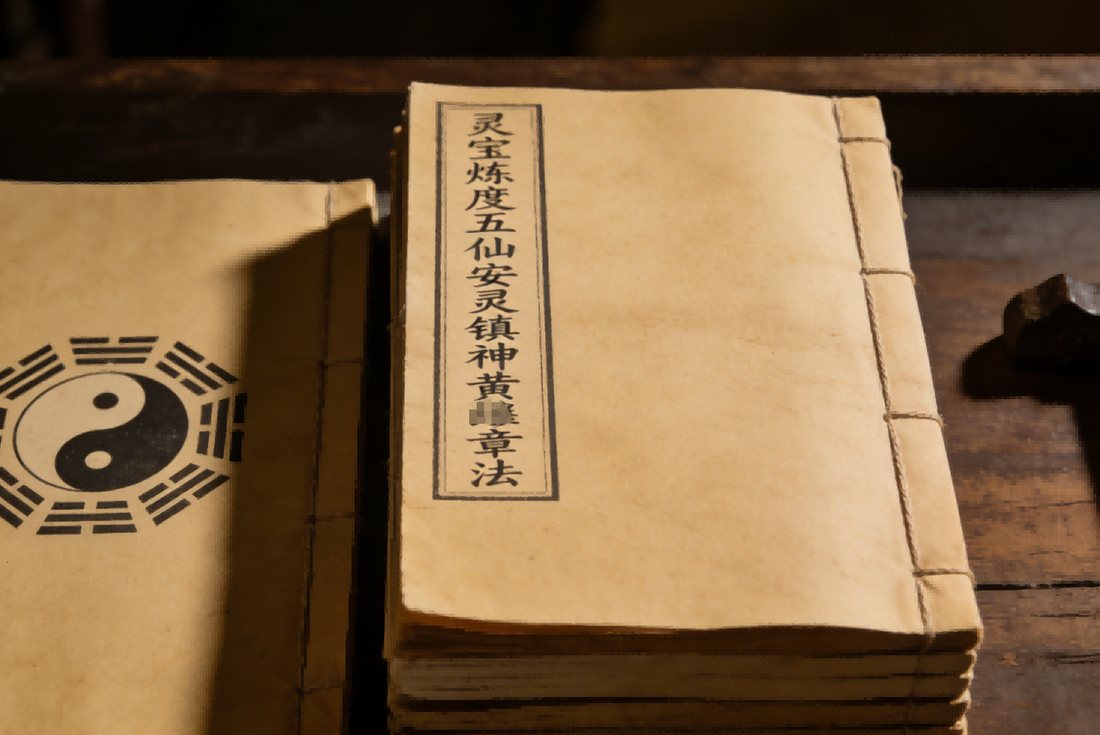 灵宝炼度五仙安灵镇神黄章法